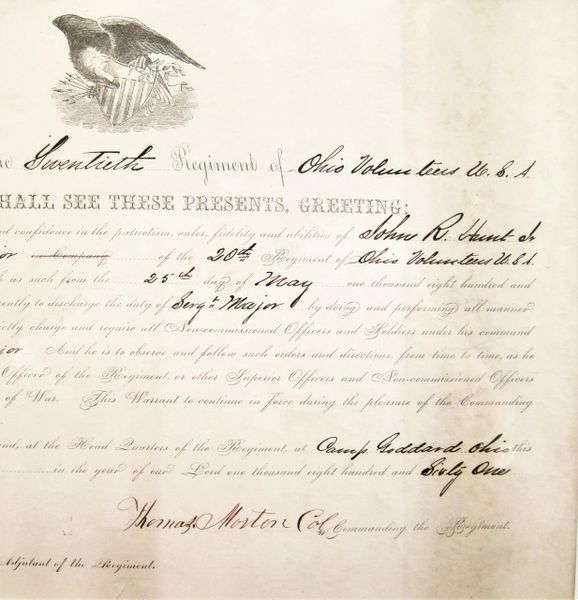 Twentieth Regiment of Ohio Volunteers U. S. A
HALL SEE THESE PRESENTS, GREETING:
confidence in the patriotism, valor, fidelity and abilities of John R. Hunt Jr
or in Company of the 20th Regiment of Ohio Volunteers U. S. A
as such from the 25th day of May one thousand eight hundred and
ently to discharge the duty of Sergt Major by doing and performing all manner
ctly charge and require all Non-commissioned Officers and Soldiers under his command
jor And he is to observe and follow such orders and directions, from time to time, as he
Officer of the Regiment, or other Superior Officers and Non-commissioned Officers
of War. This Warrant to continue in force during the pleasure of the Commanding
and, at the Head Quarters of the Regiment, at Camp Goddard Ohio this
in the year of our Lord one thousand eight hundred and Sixty One
Thomas Morton Col Commanding the Regiment.
Adjutant of the Regiment.